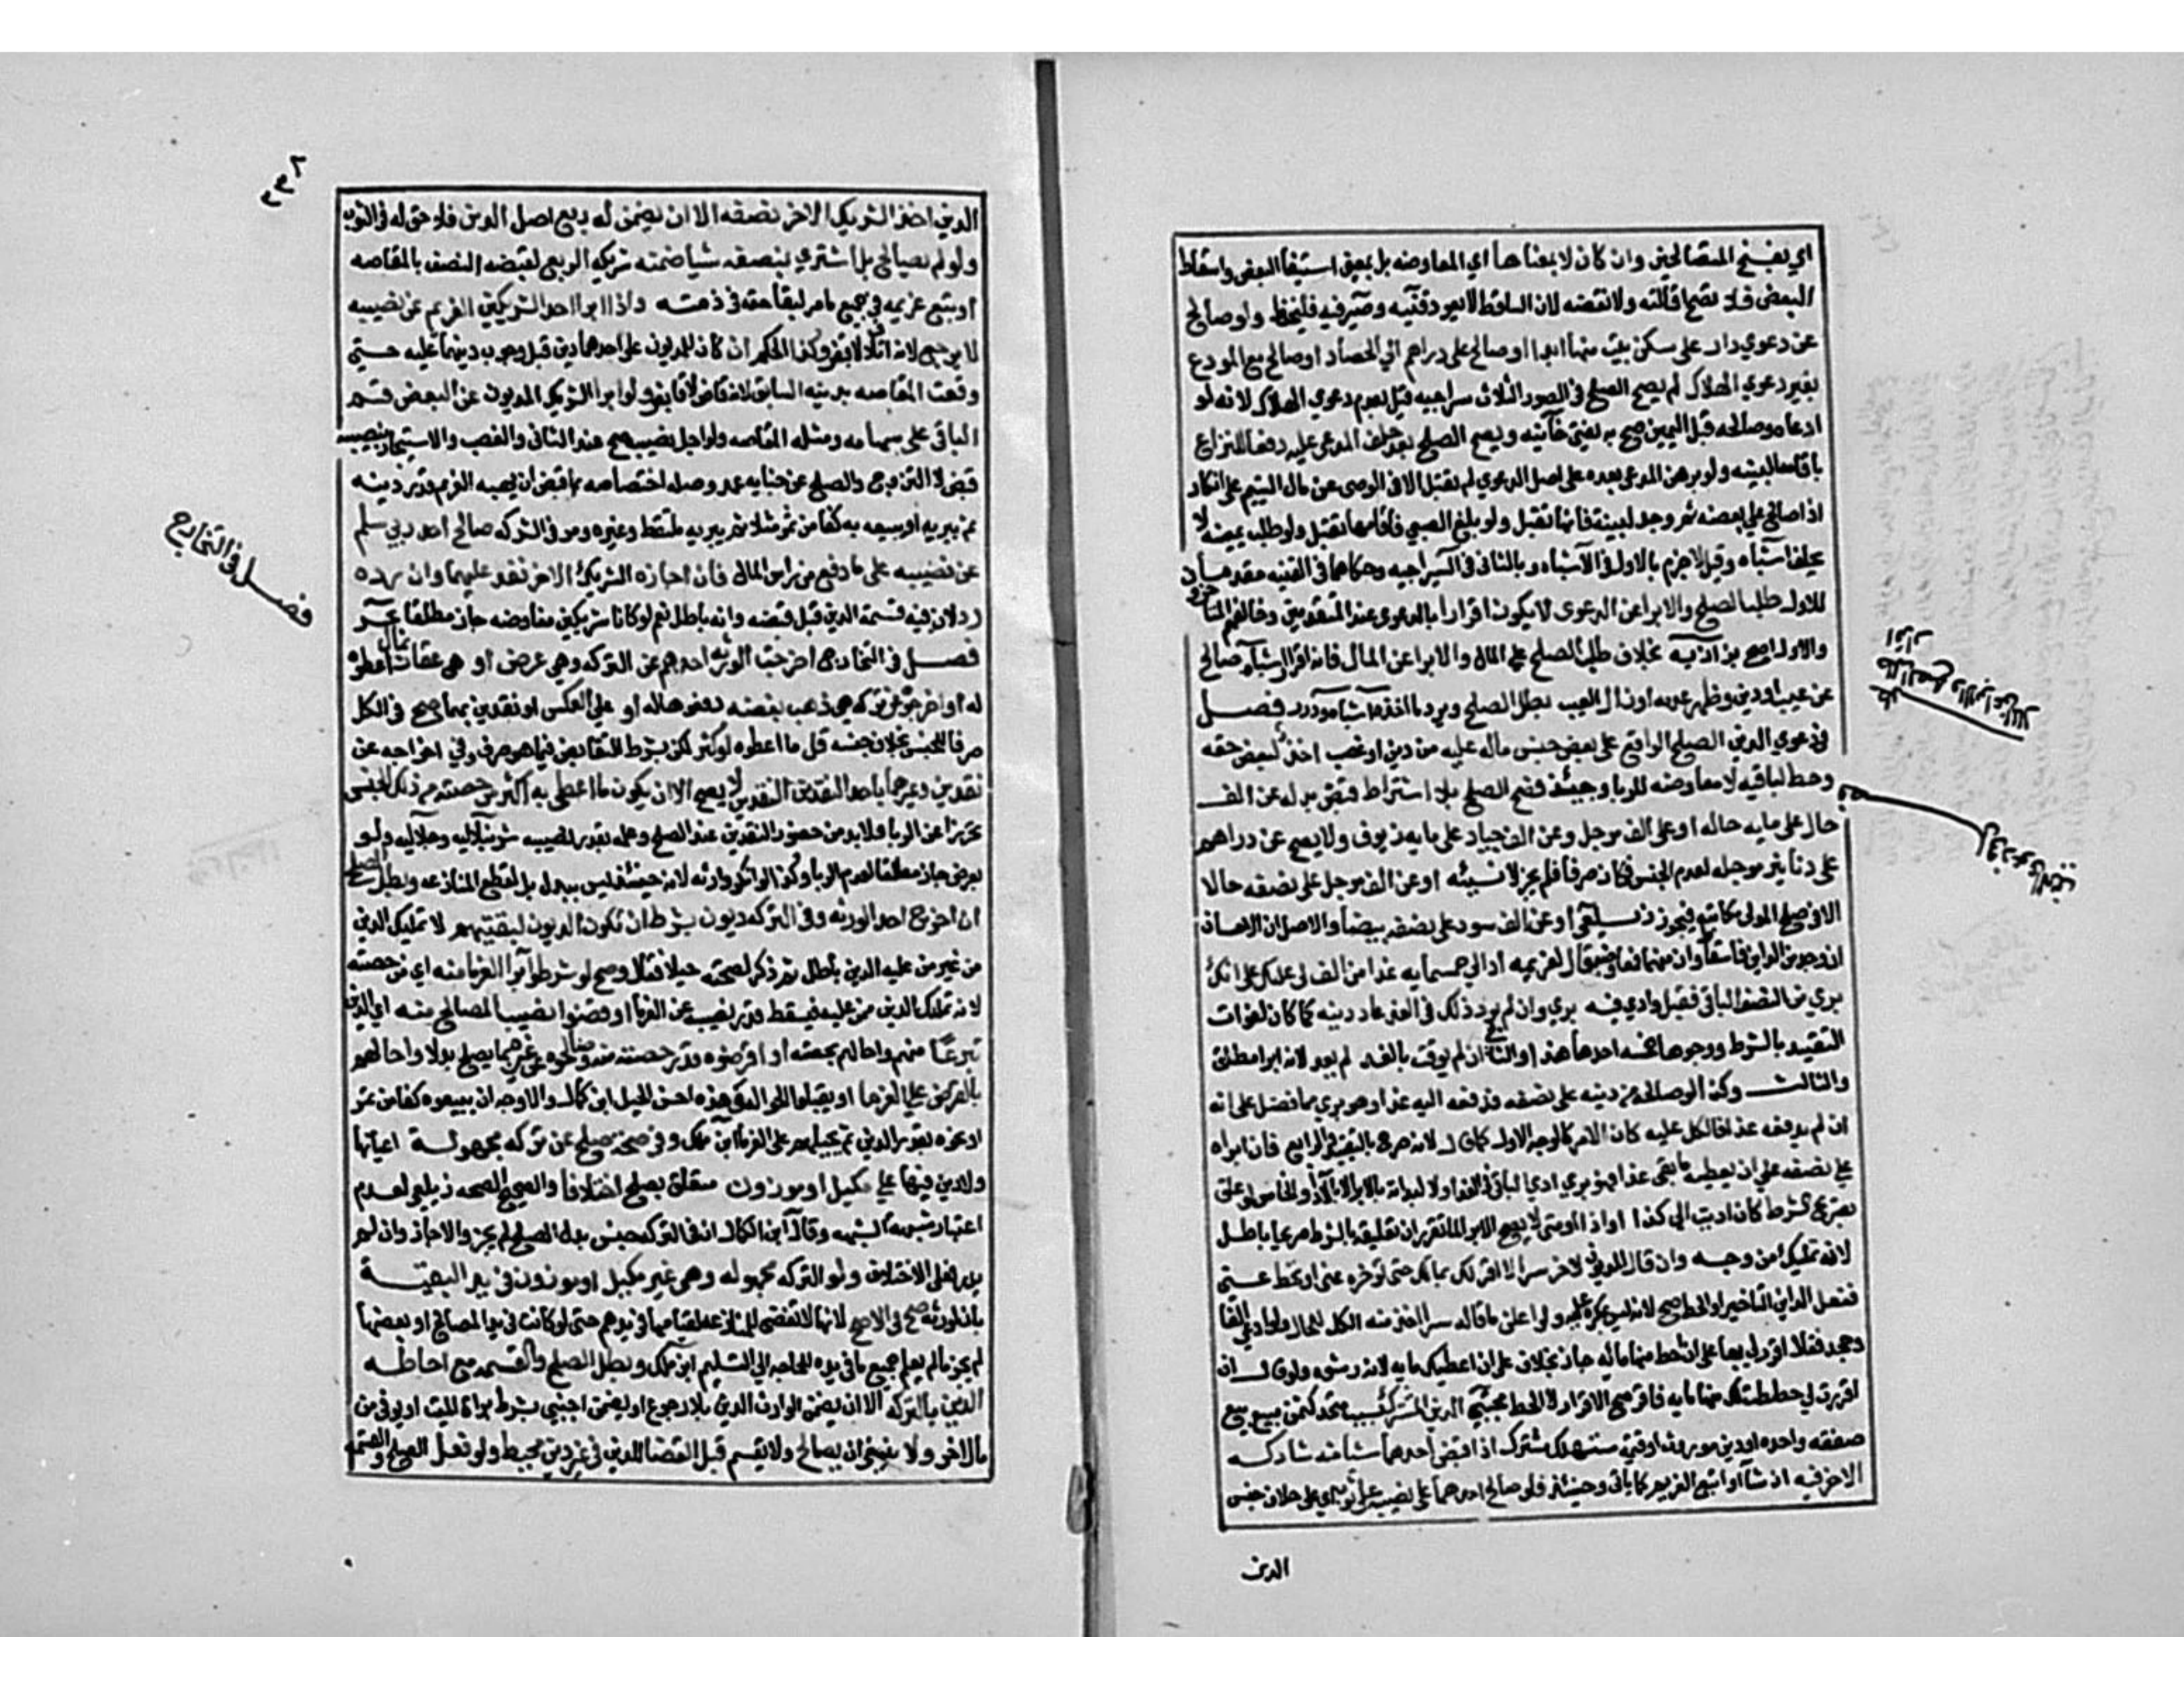 اي بفسخ المتصالحين وان كان لا بمعناها اي المعاوضه بل بمعنى استيفا البعض واسقاط
البعض فلا تصح اقالته ولا نقضه لان الساقط لا يعود قنيه وصيرفيه فليحفظ ولو صالح
عن دعوي دار على سكنى بيت منها ابدا او صالح على دراهم الي الحصاد او صالح مع المودع
بغير دعوي الهلاك لم يصح الصلح في الصور الثلاث سراجيه قيد بعدم دعوي الهلاك لانه لو
ادعاه وصالحه قبل اليمين صح به يفتى خانيه ويصح الصلح بعد حلف المدعى عليه دفعا للنزاع
باقامه البينه ولو برهن المدعى بعده على اصل الدعوي لم تقبل الا في الوصى عن مال اليتيم على انكار
اذا صالح على بعضه ثم وجد البينة فانها تقبل ولو بلغ الصبي فاقامها تقبل ولو طلب يمينه لا
يحلف اشباه وقيل لا جزم بالاول في الاشباه وبالثاني في السراجيه وحكاهما في القنيه مقدما
للاول طلب الصلح والابرا عن الدعوى لا يكون اقرارا بالدعوى عند المتقدمين وخالفهم المتاخرون
والاول اصح بزازيه بخلاف طلب الصلح علي المال والابرا عن المال فانه اقرار اشباه صالح
عن عيب او دين وظهر عدمه او زال العيب بطل الصلح ويرد ما اخذه اشباه ودرر فصل
في دعوي الدين الصلح الواقع على بعض جنس ماله عليه من دين او غصب اخذ لبعض حقه
وحط لباقيه لا معاوضه للربا وحينئذ فصح الصلح بلا اشتراط قبض بدله عن الف
حال على مايه حاله او على الف موجل وعن الف جياد على مايه زيوف ولا يصح عن دراهم
على دنانير موجله لعدم الجنس فكان صرفا فلم يجز لا نسيئه او عن الف موجل على نصفه حالا
الا في صلح المولى مكاتبه فيجوز زيلعي او عن الف سود على نصفه بيضا والاصل ان الاحسان
ان وجد من الداين فاسقاط وان منهما فمعاوضه قال لغريمه ادالي خمسمايه غدا من الف لى عليك على انك
بري من النصف الباقى فقبل وادي فيه بري وان لم يود ذلك في الغد عاد دينه كما كان لفوات
التقييد بالشرط ووجوهها خمسه احدها هذا والثاني ان لم يوقت بالغد لم يعد لانه ابرا مطلق
والثالث وكذا لو صالحه من دينه على نصفه يدفعه اليه غدا وهو بري مما فضل على انه
ان لم يدفعه غدا فالكل عليه كان الامر كالوجه الاول كما قال لانه صرح بالتقييد والرابع فان ابراه
على نصفه على ان يعطيه ما بقى غدا فهو بري ادي الباقى في الغد اولا لبداته بالابرا لا بالادا والخامس لو علق
بصريح شرط كان اديت الى كذا او اذا او متى لا يصح الابرا لما تقرر ان تعليقه بالشرط صريحا باطل
لانه تمليك من وجه وان قال المديون لاخر سرا لا اقر لك بمالك حتى توخره عنى او تحط عنى
ففعل الداين التاخير او الحط صح لانه ليس بمكره عليه ولو اعلن ما قاله سرا اخذ منه الكل للحال ولو ادعي الفا
وجحد فقال اقرر لي بها على ان احط منها مايه جاز بخلاف على ان اعطيك مايه لانه رشوه ولو قال ان
اقررت لي حططت لك منها مايه فاقر صح الاقرار لا الحط مجتبى الدين المشترك بسبب متحد كثمن مبيع بيع
صفقه واحده او دين موروث او قيمة مستهلك مشترك اذا قبض احدهما شيا منه شاركه
الاخر فيه ان شا او اتبع الغريم كما ياتي وحينئذ فلو صالح احدهما على نصيبه عن ثوب اي على خلاف جنس
الدين
مطلب
طلب الصلح والابرا عن المال
اقرار
فصل في دعوى الدين
٢٣٢
الدين اخذ الشريك الاخر نصفه الا ان يضمن له ربع اصل الدين فلا حق له في الثوب
ولو لم يصالح بل اشتري بنصفه شيا ضمنه شريكه الربع لقبضه النصف بالمقاصه
او يتبع غريمه في جميع مامر لبقا حقه في ذمته واذا ابرا احد الشريكين الغريم عن نصيبه
لا يرجع لانه اتلاف لا قبض وكذا الحكم ان كان للمديون على احدهما دين قبل وجوب دينهما عليه حتى
وقعت المقاصه بدينه السابق لانه قاض لا قابض ولو ابرا الشريك المديون عن البعض قسم
الباقي على سهامه ومثله المقاصه ولو اجل نصيبه صح عند الثاني والغصب والاستيجار بنصيبه
قبض لا التزوج والصلح عن جنايه عمد وحيله اختصاصه بما قبض ان يهبه الغريم قدر دينه
ثم يبريه او يبيعه به كفا من تمر مثلا ثم يبريه ملتقط وغيره ومر في الشركه صالح احد ربي سلم
عن نصيبه على ما دفع من راس المال فان اجازه الشريك الاخر نفذ عليهما وان رده
رد لان فيه قسمة الدين قبل قبضه وانه باطل نعم لو كانا شريكين مفاوضه جاز مطلقا بحر
فصل في التخارج اخرجت الورثه احدهم عن التركه وهي عرض او هي عقار بمال اعطوه
له او اخرجوه عن تركه هي ذهب بفضه دفعوها له او على العكس او نقدين بهما صح في الكل
صرفا للجنس بخلاف جنسه قل ما اعطوه او كثر لكن بشرط التقابض فيما هو صرف وفي اخراجه عن
نقدين وغيرهما باحد النقدين لا يصح الا ان يكون ما اعطى به اكثر من حصته من ذلك الجنس
تحرزا عن الربا ولابد من حضور النقدين عند الصلح وعلمه بقدر نصيبه شرنبلاليه وجلاليه ولو
بعرض جاز مطلقا لعدم الربا وكذا لو انكروا ارثه لانه حينئذ ليس ببدل بل لقطع المنازعه وبطل الصلح
ان اخرج احد الورثه وفي التركه ديون بشرط ان تكون الديون لبقيتهم لا تمليك الدين
من غير من عليه الدين باطل ثم ذكر لصحته حيلا فقال وصح لو شرطوا ابرا الغرما منه اي من حصته
لانه تمليك الدين ممن عليه فيسقط قدر نصيبه عن الغرما او قضوا نصيب المصالح منه اي الدين
تبرعا منهم واحالهم بحصته او اقرضوه قدر حصته منه وصالحوه عن غيرهما بما يصلح بدلا واحالهم
بالقرض على الغرما او يقبلوا الحواله وهذه احسن الحيل ابن كمال والاوجه ان يبيعوه كفا من تمر
او نحوه بقدر الدين ثم يحيلهم على الغرما ابن ملك وفي صحة صلح عن تركه مجهولة اعيانها
ولا دين فيها على مكيل او موزون متعلق بصلح اختلاف والصحيح الصحه زيلعي لعدم
اعتبار شبهة الشبهه وقال ابن الكمال ان في التركه جنس بدل الصلح لم يجز والا جاز وان لم
يدر فعلى الاختلاف ولو التركه مجهوله وهي غير مكيل او موزون في يد البقية
من الورثه صح في الاصح لانها لا تفضى للمنازعه لقيامها في يدهم حتى لو كانت في يد المصالح او بعضها
لم يجز مالم يعلم جميع ما في يده للحاجه الي التسليم ابن ملك وبطل الصلح والقسمه مع احاطه
الدين بالتركه الا ان يضمن الوارث الدين بلا رجوع او يضمن اجنبي بشرط براة الميت او يوفي من
مال اخر ولا ينبغي ان يصالح ولا يقسم قبل القضا للدين في غير دين محيط ولو فعل الصلح والقسمه
فصل في التخارج